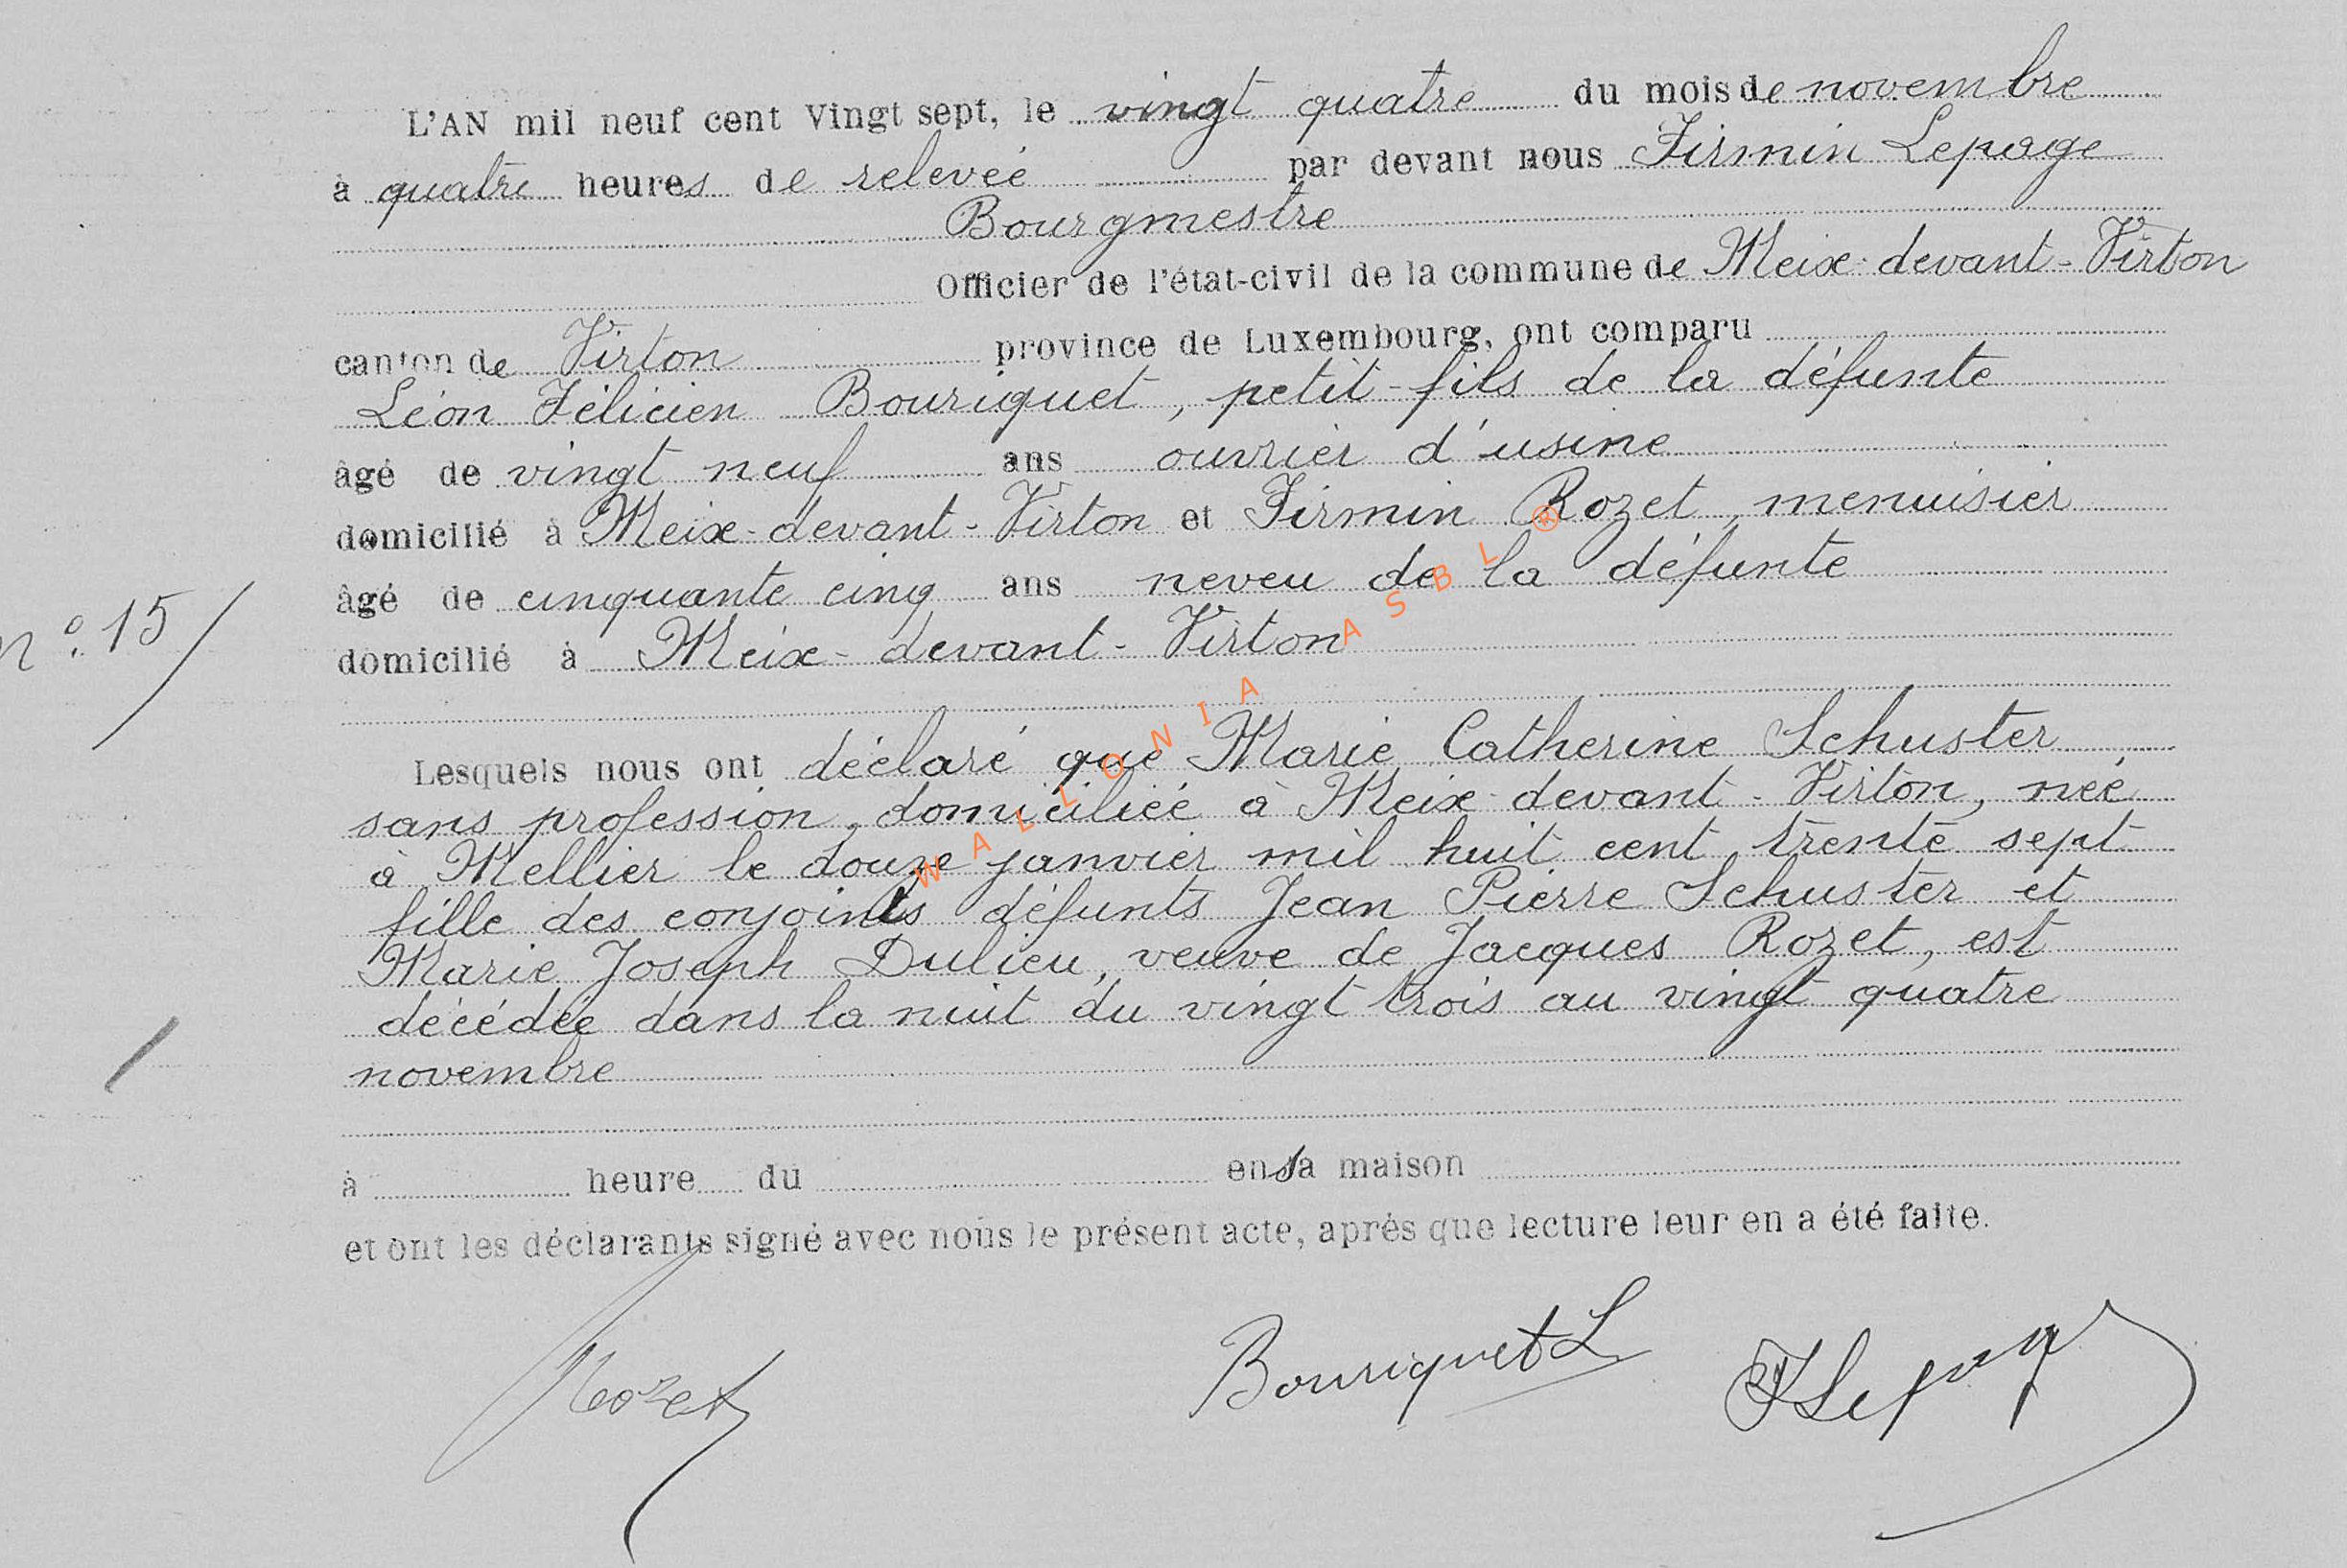 L'AN mil neuf cent Vingt sept, le vingt quatre du mois de novembre
à quatre heures de relevée par devant nous Firmin Lepage
Bourgmestre
Officier de l'état-civil de la commune de Meix-devant-Virton
canton de Virton province de Luxembourg, ont comparu
Léon Félicien Bouriquet, petit-fils de la défunte
âgé de vingt neuf ans ouvrier d'usine
domicilié à Meix-devant-Virton et Firmin Rozet, menuisier
âgé de cinquante cinq ans neveu de la défunte
n°. 15/
domicilié à Meix-devant-Virton
Lesquels nous ont déclaré que Marie Catherine Schuster
sans profession, domiciliée à Meix-devant-Virton, née
à Mellier le douze janvier mil huit cent trente sept
fille des conjoints défunts Jean Pierre Schuster et
Marie Joseph Dulieu, veuve de Jacques Rozet, est
décédée dans la nuit du vingt trois au vingt quatre
novembre
à heure du en sa maison
et ont les déclarants signé avec nous le présent acte, après que lecture leur en a été faite.
Rozet Bouriquet L FLepage
WALLONIA ASBL ®